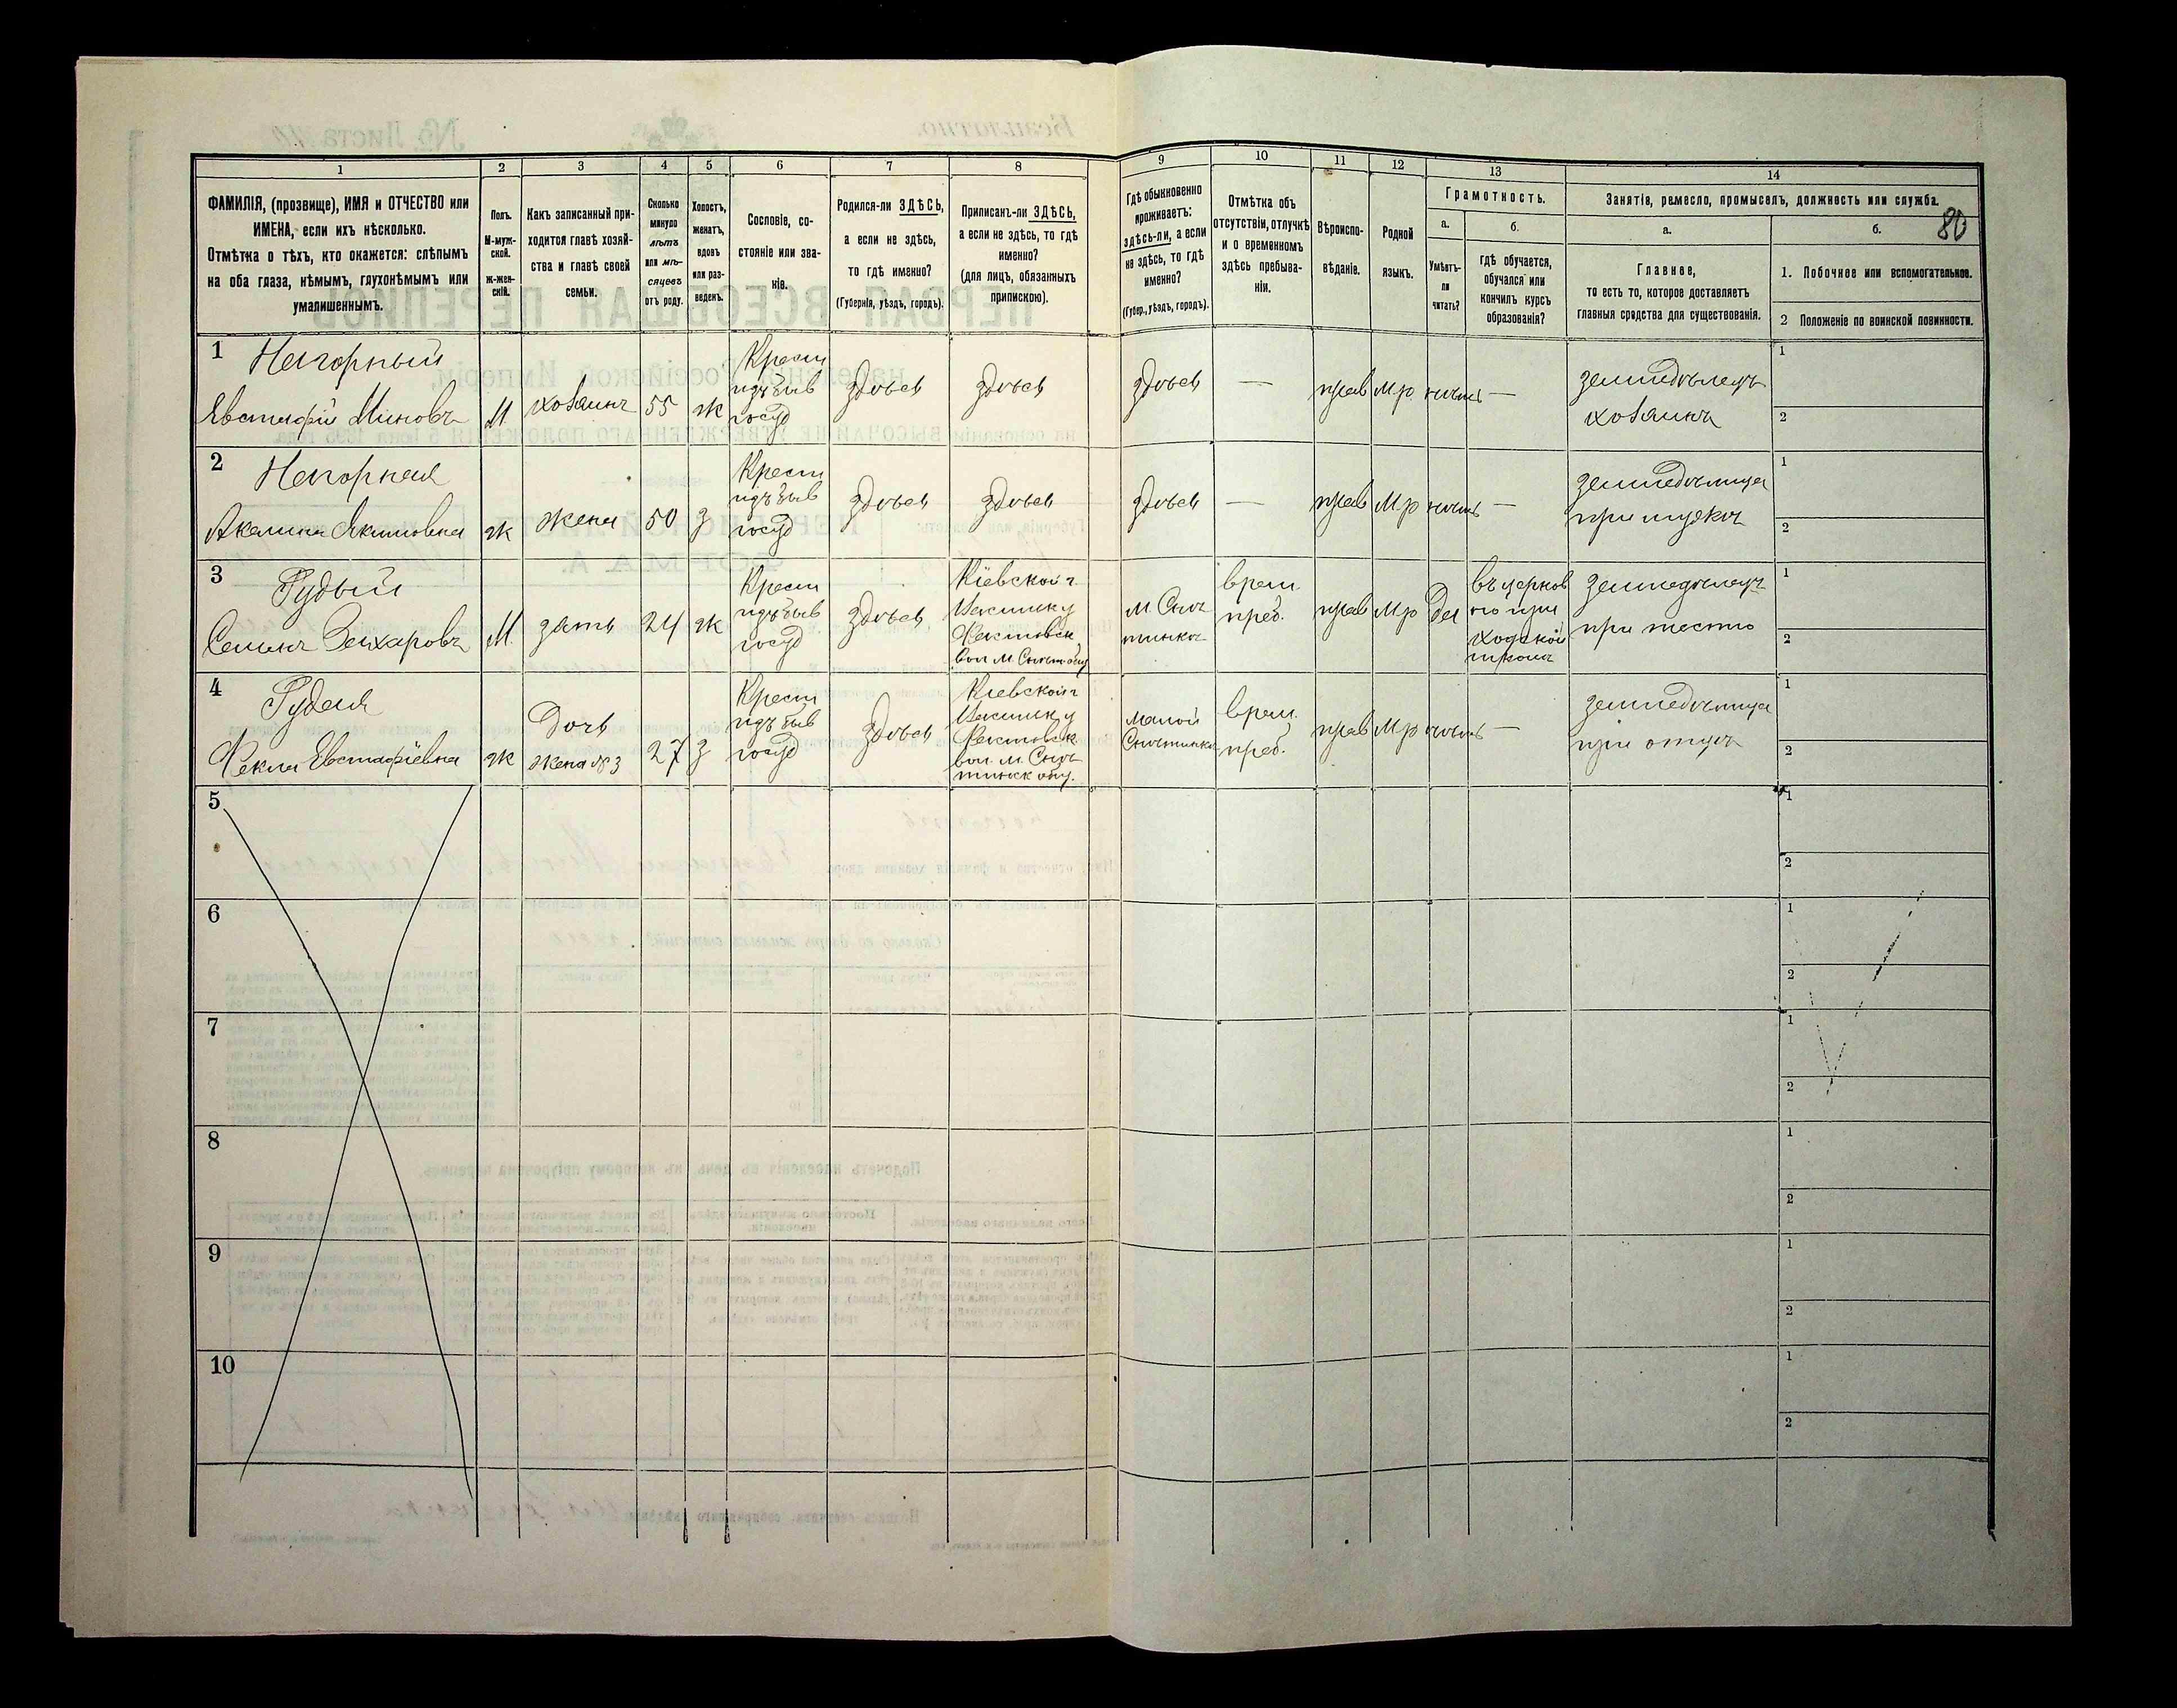 1 2 3 4 5 6 7 8 9 10 11 12 13 14
ФАМИЛІЯ, (прозвище), ИМЯ и ОТЧЕСТВО или
ИМЕНА, если ихъ нѣсколько.
Отмѣтка о тѣхъ, кто окажется: слѣпымъ
на оба глаза, нѣмымъ, глухонѣмымъ или
умалишеннымъ.
Полъ.
М-муж-
ской.
ж-жен-
скій.
Какъ записанный при-
ходится главѣ хозяй-
ства и главѣ своей
семьи.
Сколько
минуло
лѣтъ
или мѣ-
сяцевъ
отъ роду.
Холостъ,
женатъ,
вдовъ
или раз-
веденъ.
Сословіе, со-
стояніе или зва-
ніе.
Родился-ли ЗДѢСЬ,
а если не здѣсь,
то гдѣ именно?
(Губернія, уѣздъ, городъ).
Приписанъ-ли ЗДѢСЬ,
а если не здѣсь, то гдѣ
именно?
(для лицъ, обязанныхъ
припискою).
Гдѣ обыкновенно
проживаетъ:
здѣсь-ли, а если
не здѣсь, то гдѣ
именно?
(Губер., уѣздъ, городъ).
Отмѣтка объ
отсутствіи, отлучкѣ
и о временномъ
здѣсь пребыва-
ніи.
Вѣроиспо-
вѣданіе.
Родной
языкъ.
Грамотность.
а.
Умѣетъ-
ли
читать?
б.
гдѣ обучается,
обучался или
кончилъ курсъ
образованія?
Занятіе, ремесло, промыселъ, должность или служба.
80
а.
Главное,
то есть то, которое доставляетъ
главныя средства для существованія.
б.
1. Побочное или вспомогательное.
2 Положеніе по воинской повинности.
1 Нагорный
Евстафій Миновъ
М.
хозяинъ
55
ж
Крест
изъ быв
госуд
здѣсь
здѣсь
здѣсь
—
прав
Мр.
нѣтъ
—
земледѣлецъ
хозяинъ
1
2
2 Нагорная
Акилина Якимовна
ж
жена
50
з
Крест
изъ быв
госуд
здѣсь
здѣсь
здѣсь
—
прав
Мр
нѣтъ
—
земледѣлица
при мужѣ
1
2
3 Рудый
Семенъ Захаровъ
М.
зять
24
ж
Крест
изъ быв
госуд
здѣсь
Кіевской г.
Васильк у
Фастовск
вол М. Снѣт общ
М. Снѣ
тинкѣ
врем.
преб.
прав
Мр
Да
въ церков
но при
ходской
школѣ
земледѣлецъ
при тестѣ
1
2
4 Рудая
Фекла Евстафіевна
ж
Дочь
жена № 3
27
з
Крест
изъ быв
госуд
здѣсь
Кіевской г
Васильк у
Фастовск
вол. М. Снѣ
тинск общ.
малой
Снѣтинкѣ
врем.
преб.
прав
Мр
нѣтъ
—
земледѣлица
при отцѣ
1
2
5
1
2
6
1
2
7
1
2
8
1
2
9
1
2
10
1
2